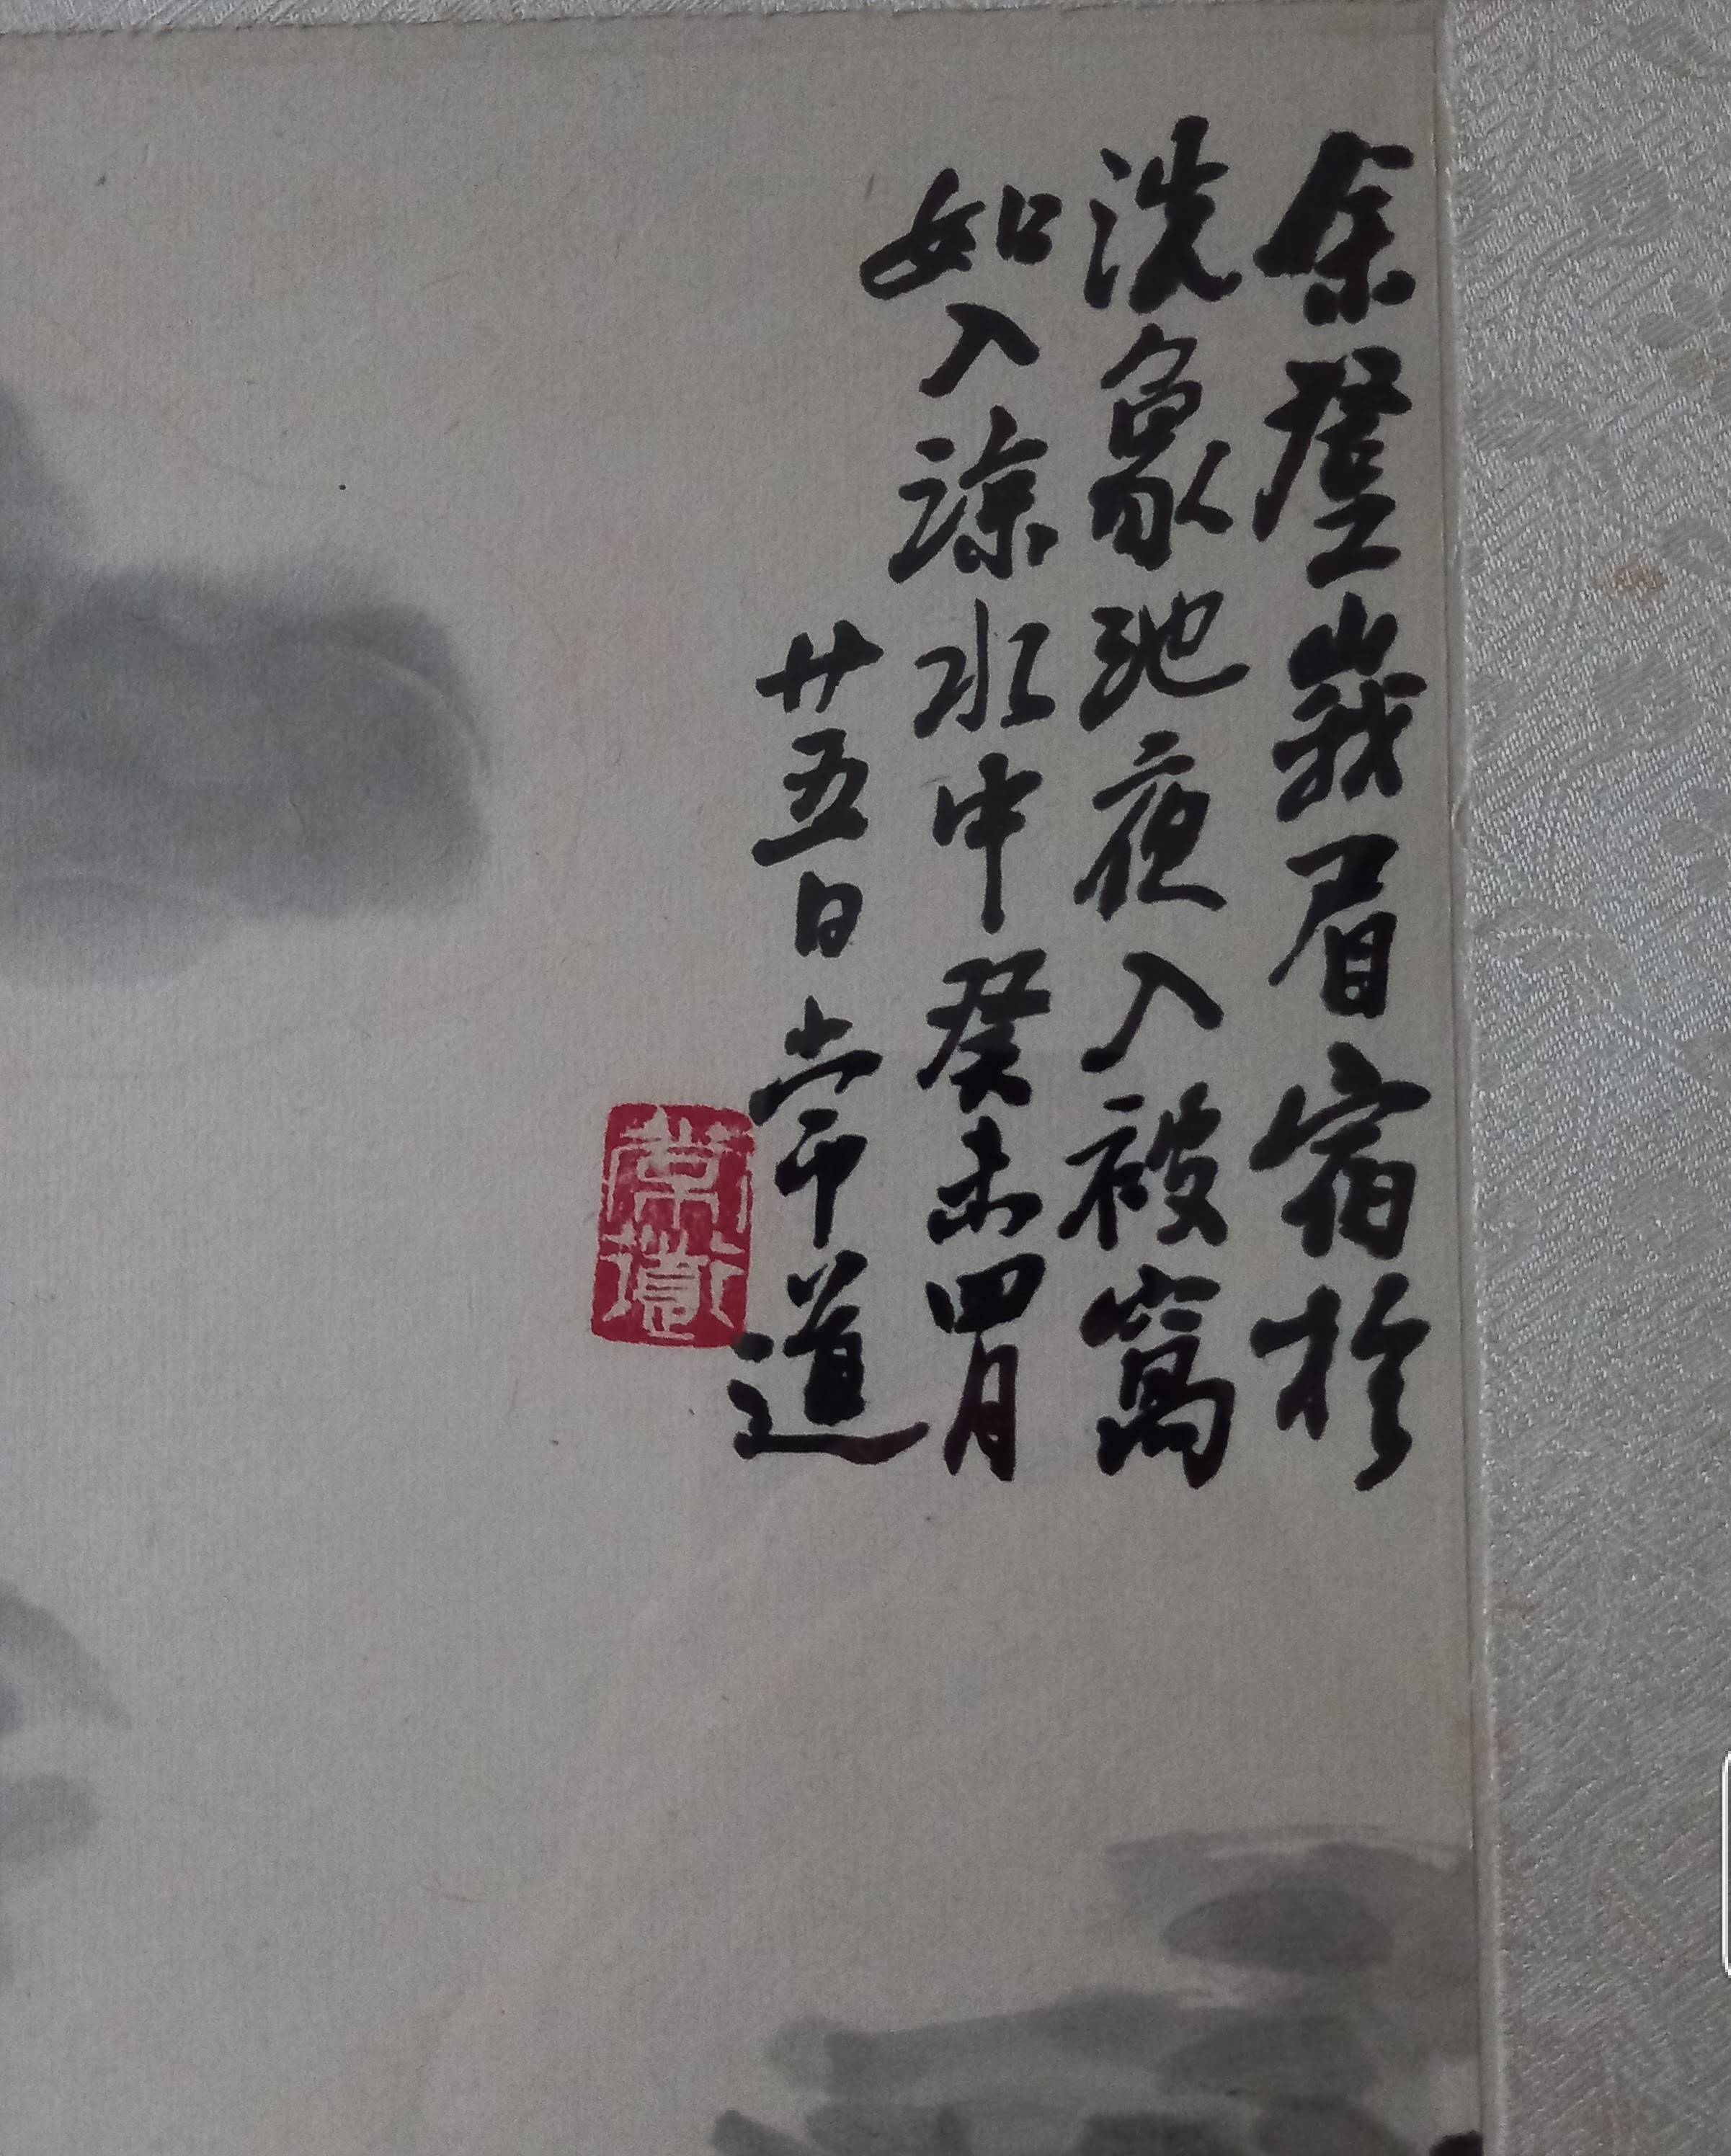 余登峩眉宿於
洗象池夜入被窩
如入涼水中癸未四月
廿五日常道